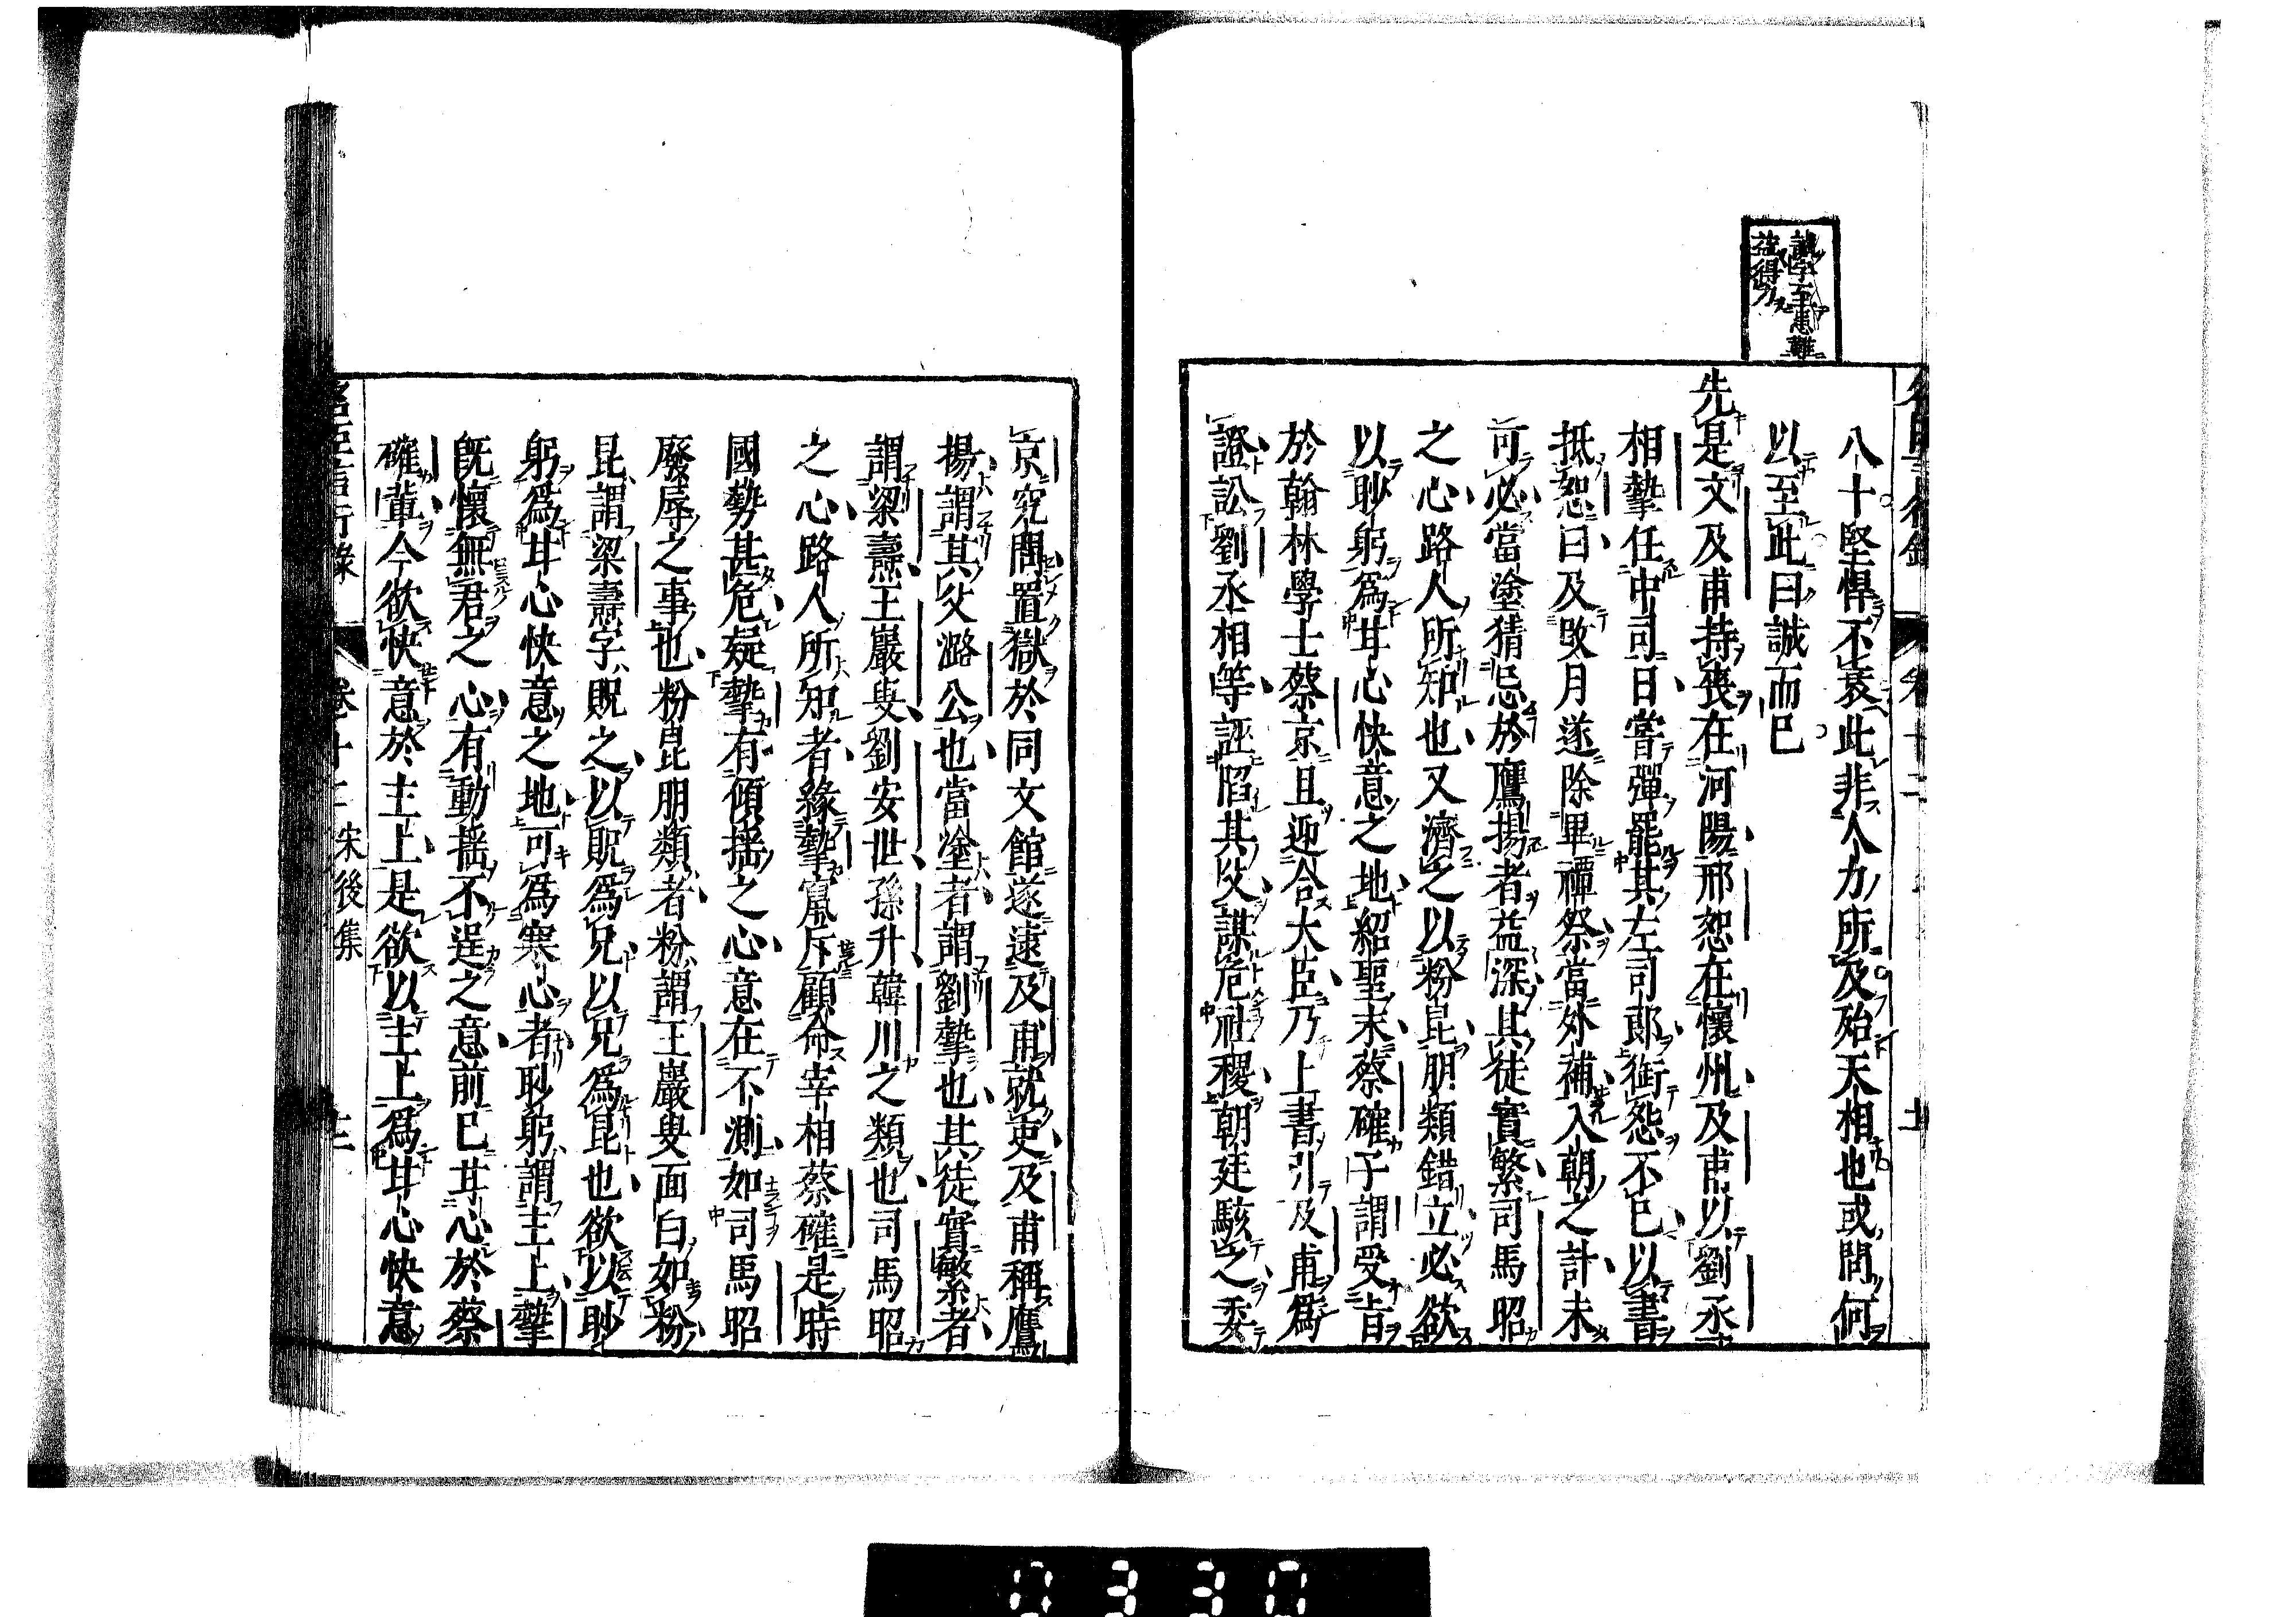 誠學至患難
益得力
八十堅悍不衰此非人力所及殆天相也或問何
以至此曰誠而已
先是文及甫持喪在河陽邢恕在懷州及甫以劉丞
相摯任中司日嘗彈罷其左司郎銜怨不已以書
抵恕曰及改月遂除畢禫祭當外補入朝之計未
可必當塗猜忌於鷹揚者益深其徒實繁司馬昭
之心路人所知也又濟之以粉昆朋類錯立必欲
以眇躬爲甘心快意之地紹聖末蔡確子謂受旨
於翰林學士蔡京且迎合大臣乃上書引及甫爲
證訟劉丞相等誣陷其父謀危社稷朝廷駭之委
京究問置獄於同文館遂逮及甫就吏及甫稱鷹
揚謂其父潞公也當塗者謂劉摯也其徒實繁者
謂梁燾王巖叟劉安世孫升韓川之類也司馬昭
之心路人所知者緣摯竄斥顧命宰相蔡確是時
國勢甚危疑摯有傾搖之心意在不測如司馬昭
廢辱之事也粉昆朋類者粉謂王巖叟面白如粉
昆謂梁燾字況之以況爲兄以兄爲昆也欲以眇
躬爲甘心快意之地可爲寒心者眇躬謂主上摯
既懷無君之心有動搖不逞之意前已甘心於蔡
確輩今欲快意於主上是欲以主上爲甘心快意
名臣言行錄 卷十二 宋後集